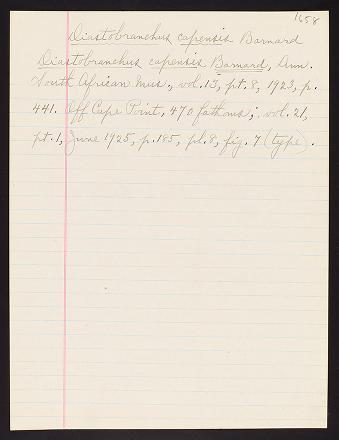 1658
Diastobranchus capensis Barnard
Diastobranchus capensis Barnard, Ann.
South African Mus., vol. 13, pt. 8, 1923, p.
441. Off Cape Point, 470 fathoms; vol. 21,
pt. 1, June 1925, p. 185, pl. 8, fig. 7 (type).